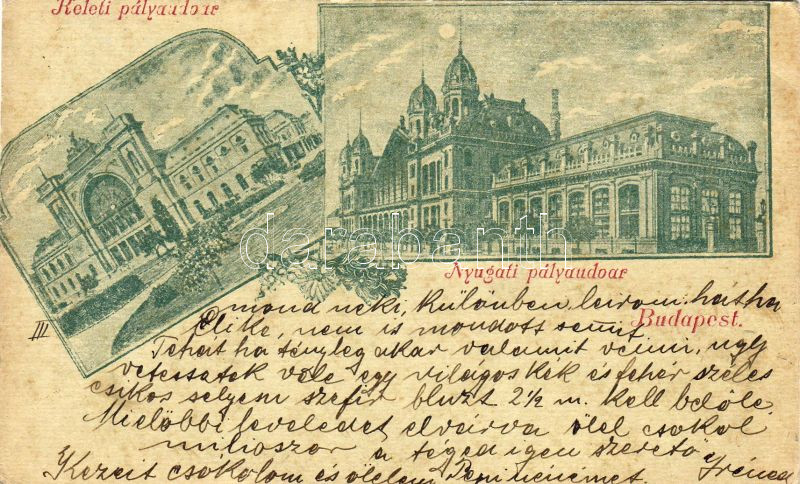 Keleti pályaudvar
Nyugati pályaudvar
Budapest.
III
darabanth
mond neki, különben leirom hátha
Elike, nem is mondott semmit
Tehát ha tényleg akar valamit venni, ugy
vetessetek vele egy világos kék és fehér széles
csikos selyem szefir bluzt 2½ m. kell belőle.
Mielőbbi leveledet elvárva ölel csokol
milioszor a téged igen szerető
Kezeit csókolom és ölelem Pepi nénémet. Iréned